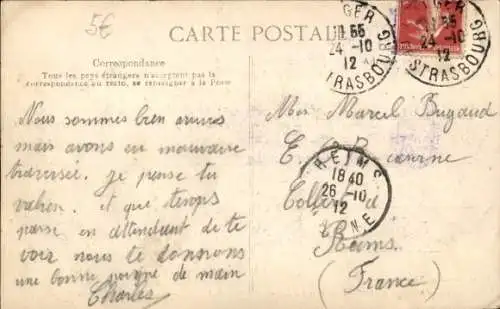 5€
CARTE POSTALE
Correspondance
Tous les pays étrangers n'acceptent pas la
correspondance au recto, se renseigner à la Poste
Nous sommes bien arrivés
mais avons eu mauvaise
traversée. je pense tu
va bien. et que temps
passe en attendant de te
voir nous te donnons
une bonne poigne de main
Charles
GER
24-10
12
STRASBOURG
GER
24-10
12
STRASBOURG
Mr Marcel Bugaud
E.
REIMS
18 40
26-10
12
MARNE
Reims
(France)